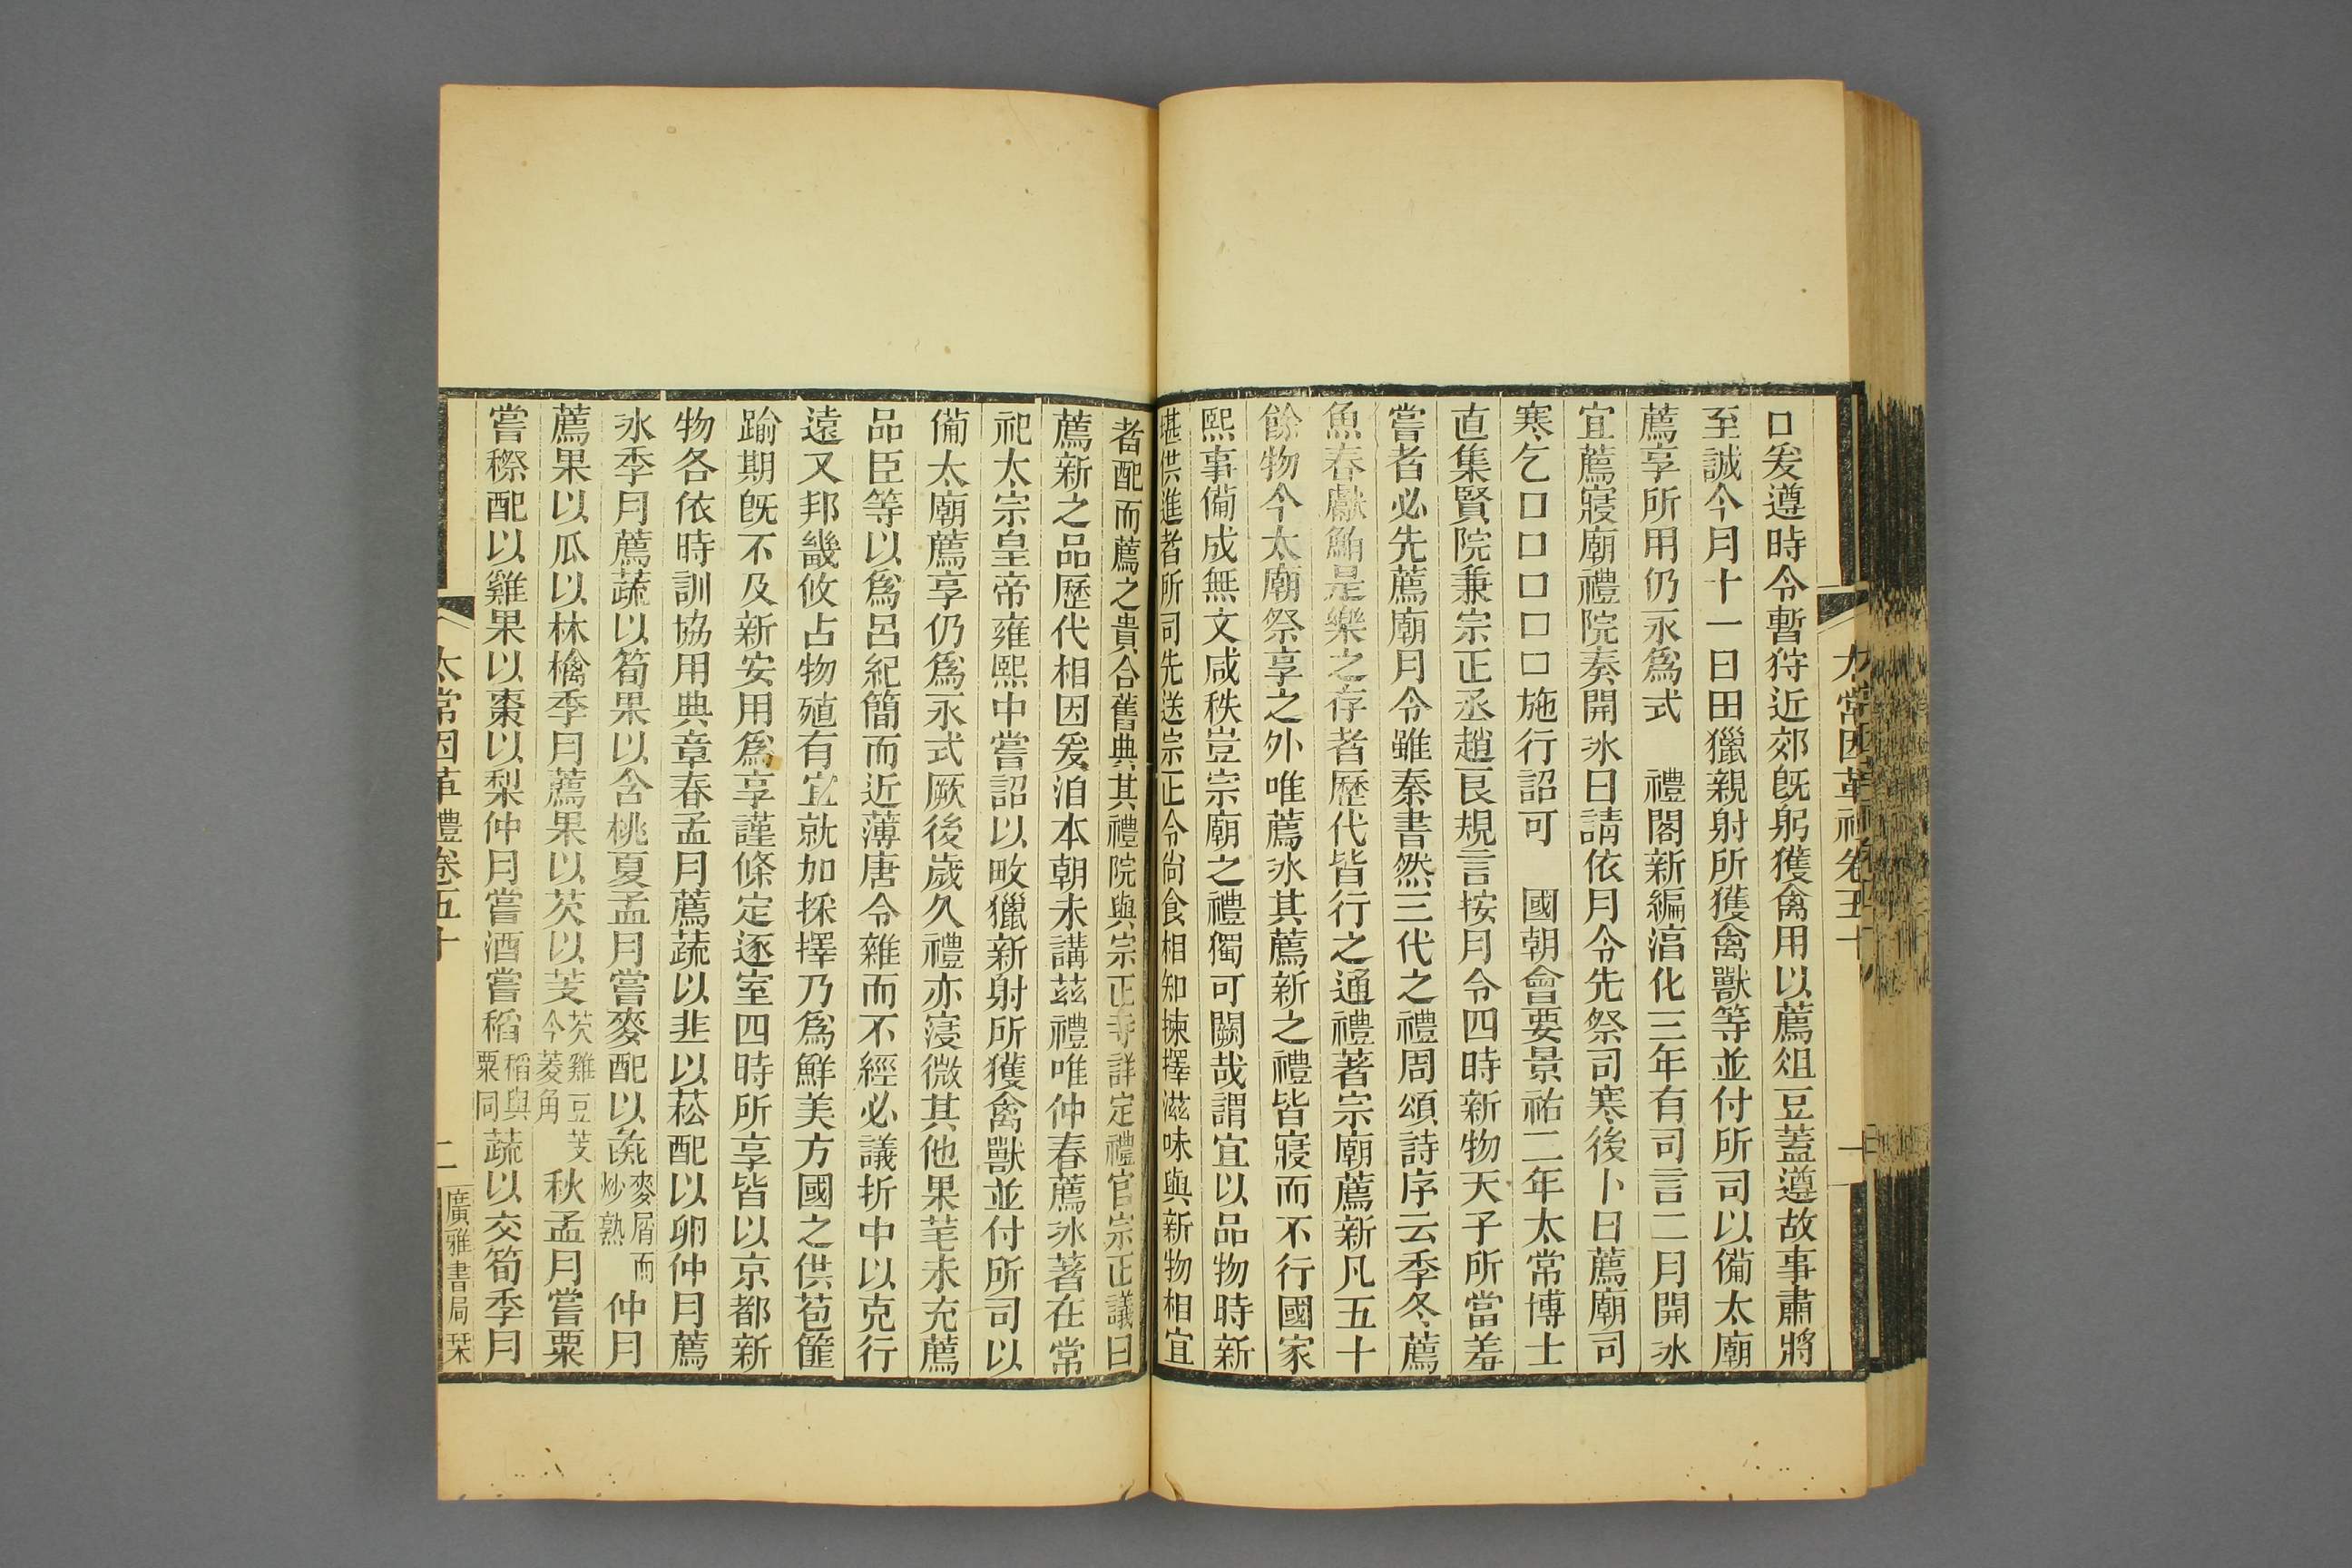 太常因革禮卷五十 一
口爰遵時令暫狩近郊旣躬獲禽用以薦俎豆蓋遵故事肅將
至誠今月十一日田獵親射所獲禽獸等並付所司以備太廟
薦享所用仍永爲式 禮閣新編淳化三年有司言二月開冰
宜薦寢廟禮院奏開冰日請依月令先祭司寒後卜日薦廟司
寒乞口口口口口施行詔可 國朝會要景祐二年太常博士
直集賢院兼宗正丞趙良規言按月令四時新物天子所當羞
嘗者必先薦廟月令雖秦書然三代之禮周頌詩序云季冬薦
魚春獻鮪是樂之存者歷代皆行之通禮著宗廟薦新凡五十
餘物今太廟祭享之外唯薦冰其薦新之禮皆寢而不行國家
熙事備成無文咸秩豈宗廟之禮獨可闕哉謂宜以品物時新
堪供進者所司先送宗正令尙食相知揀擇滋味與新物相宜
者配而薦之貴合舊典其禮院與宗正寺詳定禮官宗正議曰
薦新之品歷代相因爰洎本朝未講茲禮唯仲春薦冰著在常
祀太宗皇帝雍熙中嘗詔以畋獵新射所獲禽獸並付所司以
備太廟薦享仍爲永式厥後歲久禮亦寖微其他果芼未充薦
品臣等以爲呂紀簡而近薄唐令雜而不經必議折中以克行
遠又邦畿攸占物殖有宜就加採擇乃爲鮮美方國之供苞篚
踰期旣不及新安用爲享謹條定逐室四時所享皆以京都新
物各依時訓協用典章春孟月薦蔬以韭以菘配以卵仲月薦
冰季月薦蔬以筍果以含桃夏孟月嘗麥配以彘麥屑而炒熟仲月
薦果以瓜以林檎季月薦果以芡以芰芡雞豆芰今菱角秋孟月嘗粟
嘗穄配以雞果以棗以梨仲月嘗酒嘗稻稻與粟同蔬以茭筍季月
太常因革禮卷五十 二 廣雅書局栞